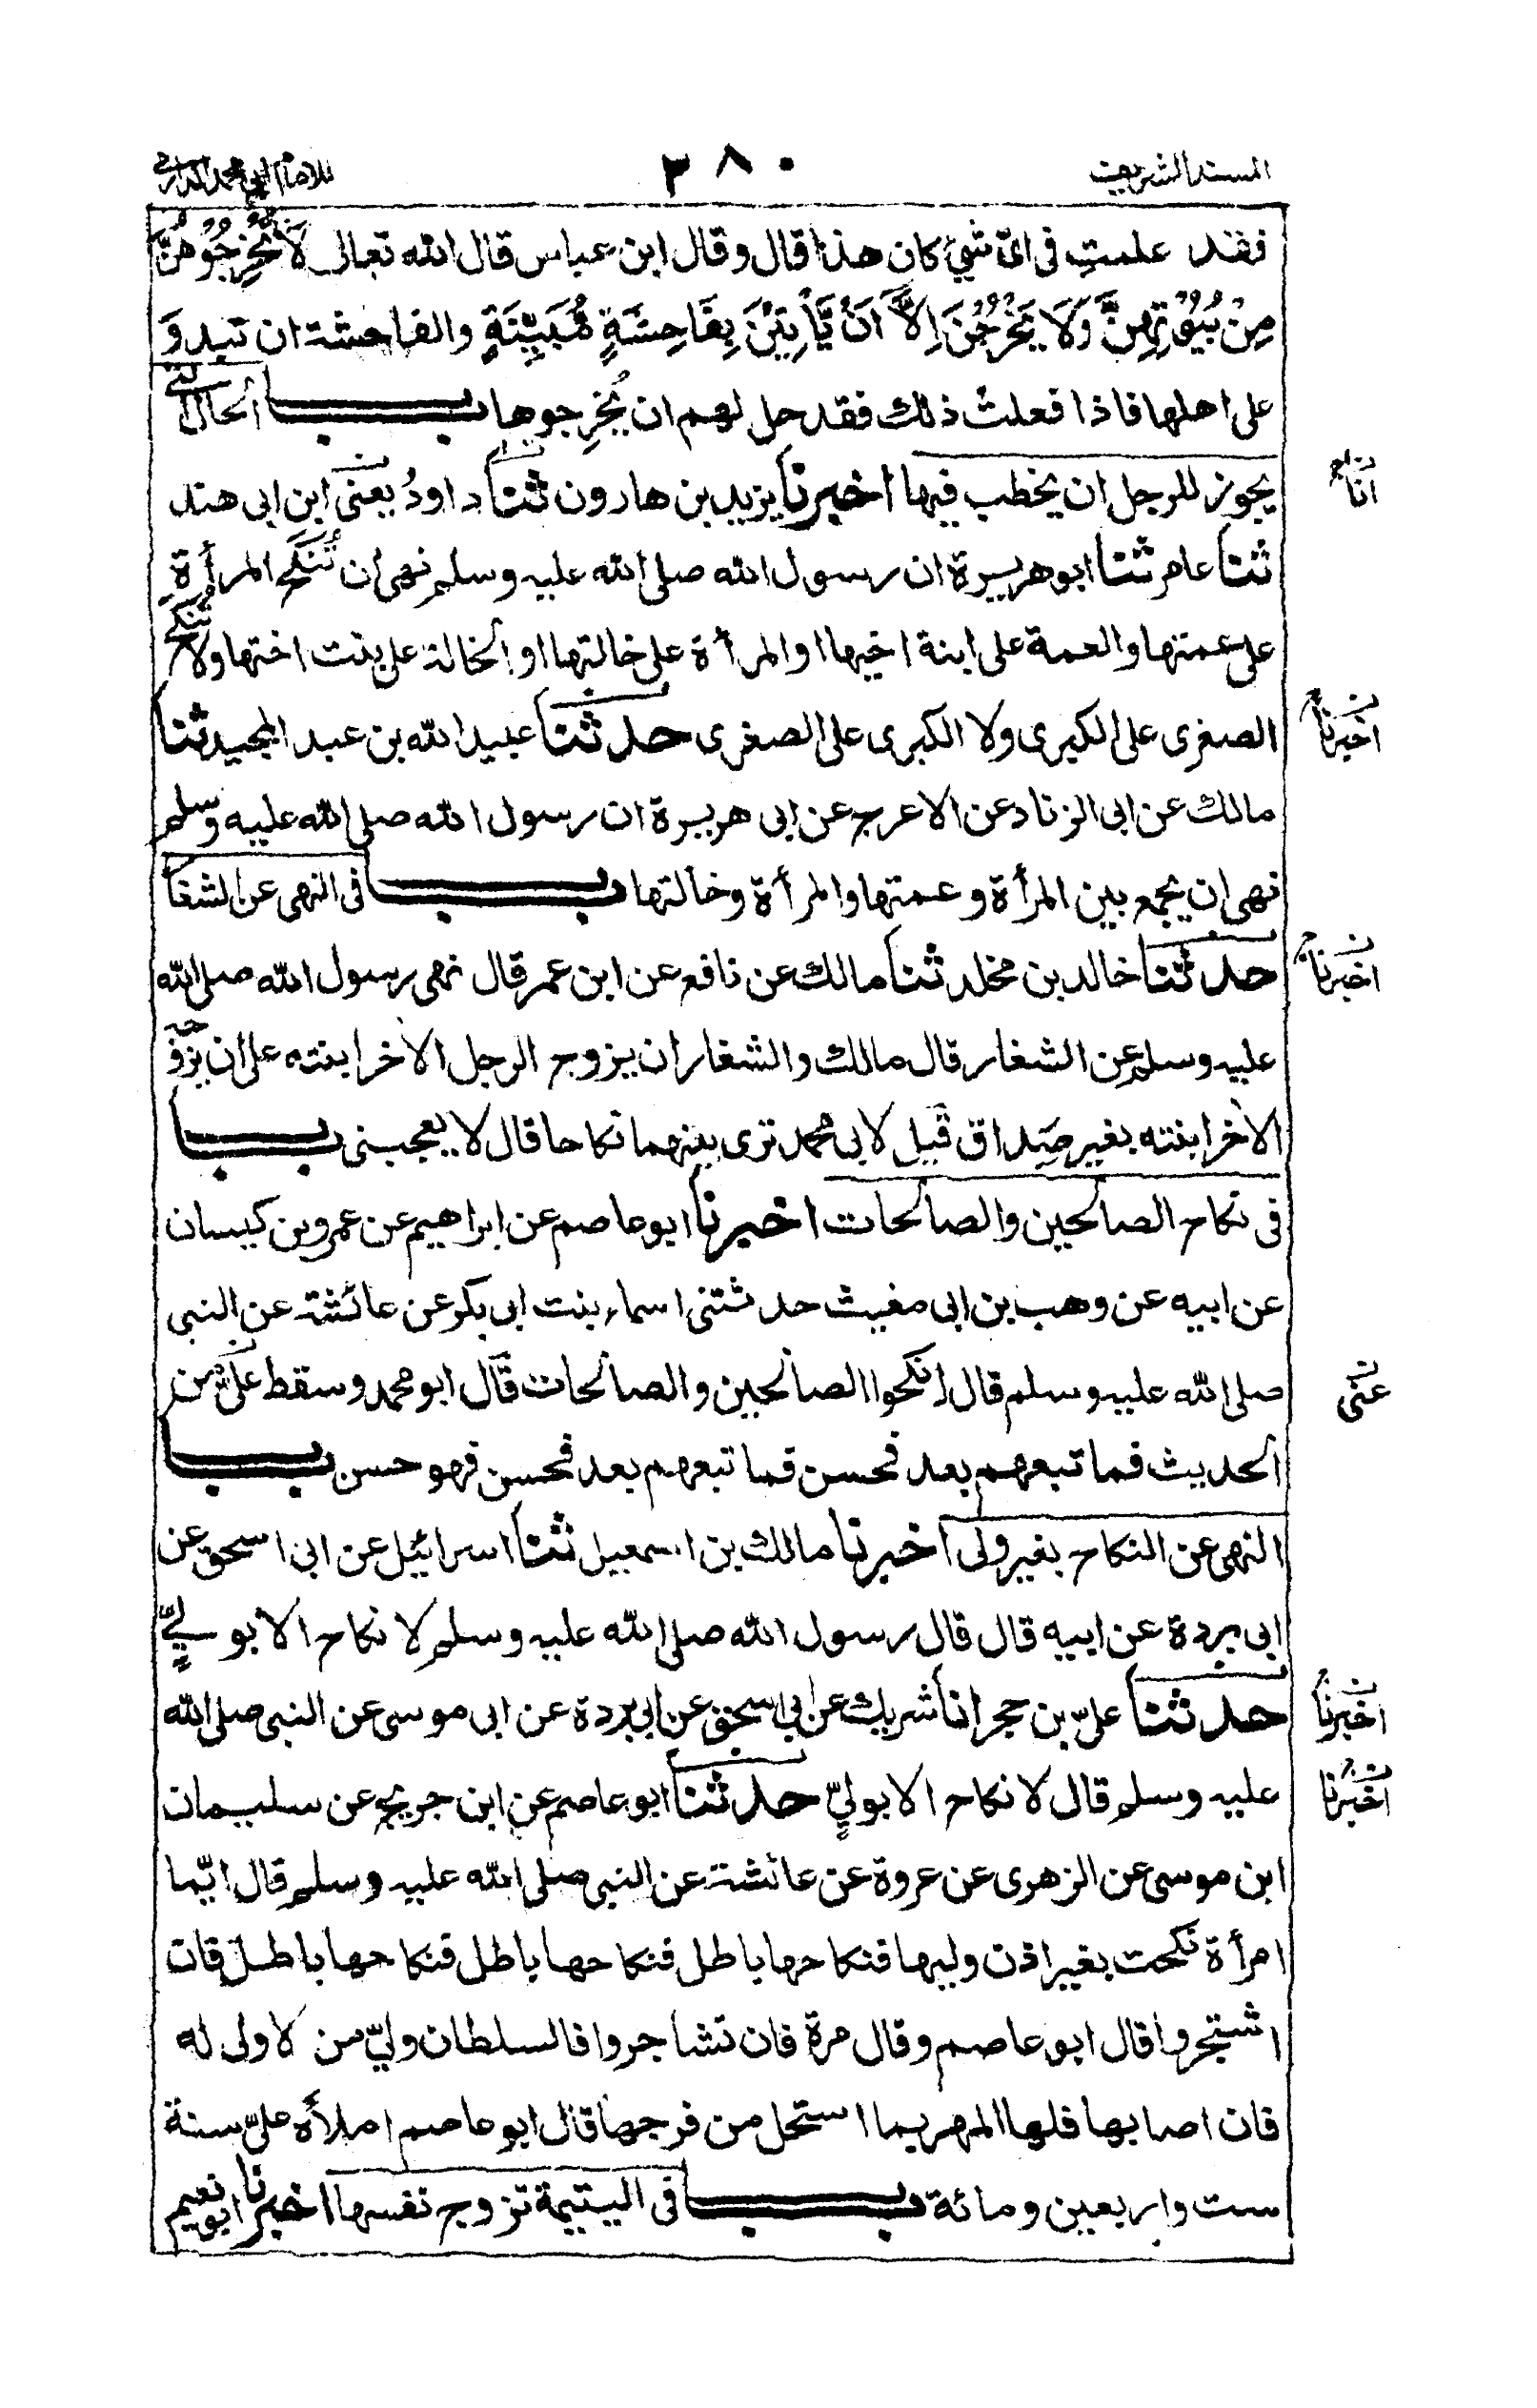 المسند الشريف
٣٨٠
للامام ابي محمد الدارمي
فقد علمتِ فى اىّ شيئ كان هذا قال وقال ابن عباس قال الله تعالى لَا تُخْرِجُوْهُنَّ
مِنْ بُيُوْتِهِنَّ وَلَا يَخْرُجْنَ اِلَّا اَنْ يَّأْتِيْنَ بِفَاحِشَةٍ مُّبَيِّنَةٍ والفاحشة ان تبدوَ
على اهلها فاذا فعلت ذلك فقد حل لهم ان يُخرِجوها باب الحال التى
يجوز للرجل ان يخطب فيها اخبرنا يزيد بن هارون ثنا داودُ يعنى ابن ابى هند
انا
ثنا عامر ثنا ابو هريرة ان رسول الله صلى الله عليه وسلم نهى أن تُنكَح المرأة
على عمتها والعمة على ابنة اخيها او المرأة على خالتها او الخالة على بنت اختها ولا تُنكح
الصغرى على الكبرى ولا الكبرى على الصغرى حدثنا عبيد الله بن عبد المجيد ثنا
اخبرنا
مالك عن ابى الزناد عن الاعرج عن ابى هريرة ان رسول الله صلى الله عليه وسلم
نهى ان يجمع بين المرأة وعمتها والمرأة وخالتها باب فى النهى عن الشغا
حدثنا خالد بن مخلد ثنا مالك عن نافع عن ابن عمر قال نهى رسول الله صلى الله
اخبرنا
عليه وسلم عن الشغار قال مالك والشغار ان يزوج الرجل الاخر ابنته على ان يزوّجه
الاخر ابنته بغير صداق قيل لابى محمد ترى بينهما نكاحا قال لا يعجبنى باب
فى نكاح الصالحين والصالحات اخبرنا ابو عاصم عن ابراهيم عن عمرو بن كيسان
عن ابيه عن وهب بن ابى مغيث حدثتنى اسماء بنت ابى بكر عن عائشة عن النبى
صلى الله عليه وسلم قال انكحوا الصالحين والصالحات قال ابو محمد وسقط علىّ من
عنى
الحديث فما تبعهم بعد فحسن فما تبعهم بعد فحسن فهو حسن باب
النهى عن النكاح بغير ولى اخبرنا مالك بن اسمعيل ثنا اسرائيل عن ابى اسحق عن
ابى بردة عن ابيه قال قال رسول الله صلى الله عليه وسلم لا نكاح الا بوليٍّ
حدثنا علىّ بن حجر انا شريك عن ابى اسحق عن ابى بردة عن ابى موسى عن النبى صلى الله
اخبرنا
عليه وسلم قال لا نكاح الا بوليٍّ حدثنا ابو عاصم عن ابن جريج عن سليمان
اخبرنا
ابن موسى عن الزهرى عن عروة عن عائشة عن النبى صلى الله عليه وسلم قال ايّما
امرأة نكحت بغير اذن وليها فنكاحها باطل فنكاحها باطل فنكاحها باطل فان
اشتجروا قال ابو عاصم وقال مرة فان تشاجروا فالسلطان ولىّ من لا ولى له
فان اصابها فلها المهر بما استحل من فرجها قال ابو عاصم املأه علىّ سنة
ست واربعين ومائة باب فى اليتيمة تزوج نفسها اخبرنا ابو نعيم